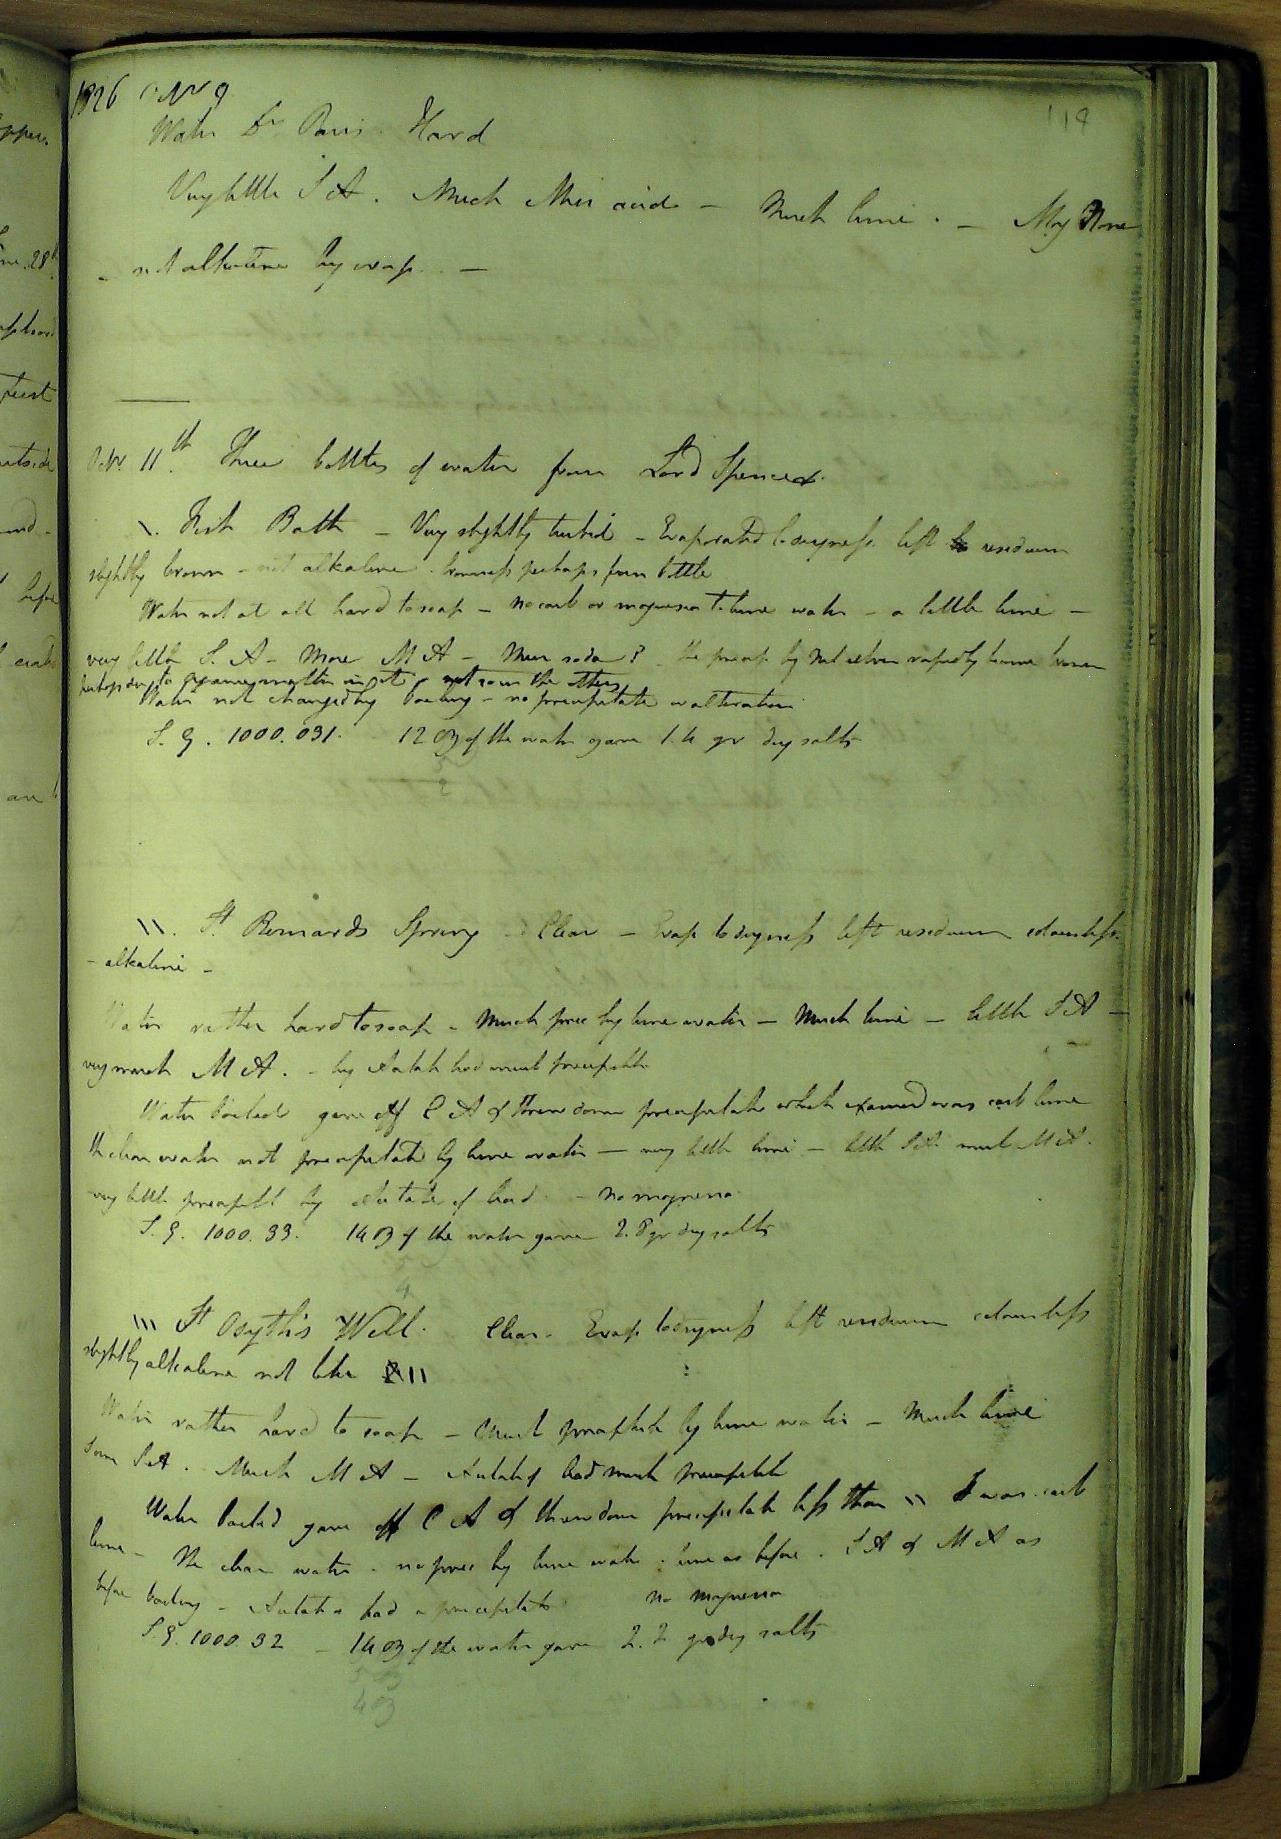 1826 Octr 9
118
Water Dr Paris Hard
Very little S A. Much Mur acid - Much lime. - Mag None
- not alkaline by evap. -
Octr. 11th. Three bottles of water from Lord Spencer.
\. Fish Bath - Very slightly turbid - Evaporated to dryness left residuum
slightly brown - not alkaline. brownness perhaps from bottle
Water not at all hard to soap - no carb or magnesia to lime water - a little lime -
very little S. A - more M A - Mur soda? the precip by Nit silver rapidly became brown
perhaps due to organic matter in it not so in the others
Water not changed by boiling - no precipitate or alteration
S. G. 1000.031. 12 oz of the water gave 1.4 gr dry salts
\\. St Bernards Spring Clear - Evap to dryness left residuum colourless.
- alkaline -
Water rather hard to soap - Much prec by lime water - Much lime - little S A -
very much M A. - by Acetate lead much precipitate
Water boiled gave off C A & threw down precipitate which examined was carb lime
the clear water not precipitated by lime water - very little lime - little S A much M A.
very little precipitate by Acetate of lead - No magnesia
S. G. 1000.33. 14 oz of the water gave 2.8 gr dry salts
\\\ St Osyth's Well. Clear. Evap to dryness left residuum colourless
slightly alkaline not like \\
Water rather hard to soap - Much precipitate by lime water - Much lime
Some S A. Much M A - Acetate of lead much precipitate
Water boiled gave off C A & threw down precipitate less than \\ & was carb
lime - The clear water - no prec by lime water. lime as before. S A & M A as
before boiling - Acetate lead a precipitate no magnesia
S. G. 1000.32 - 14 oz of the water gave 2.2 gr dry salts
5 oz
4 oz